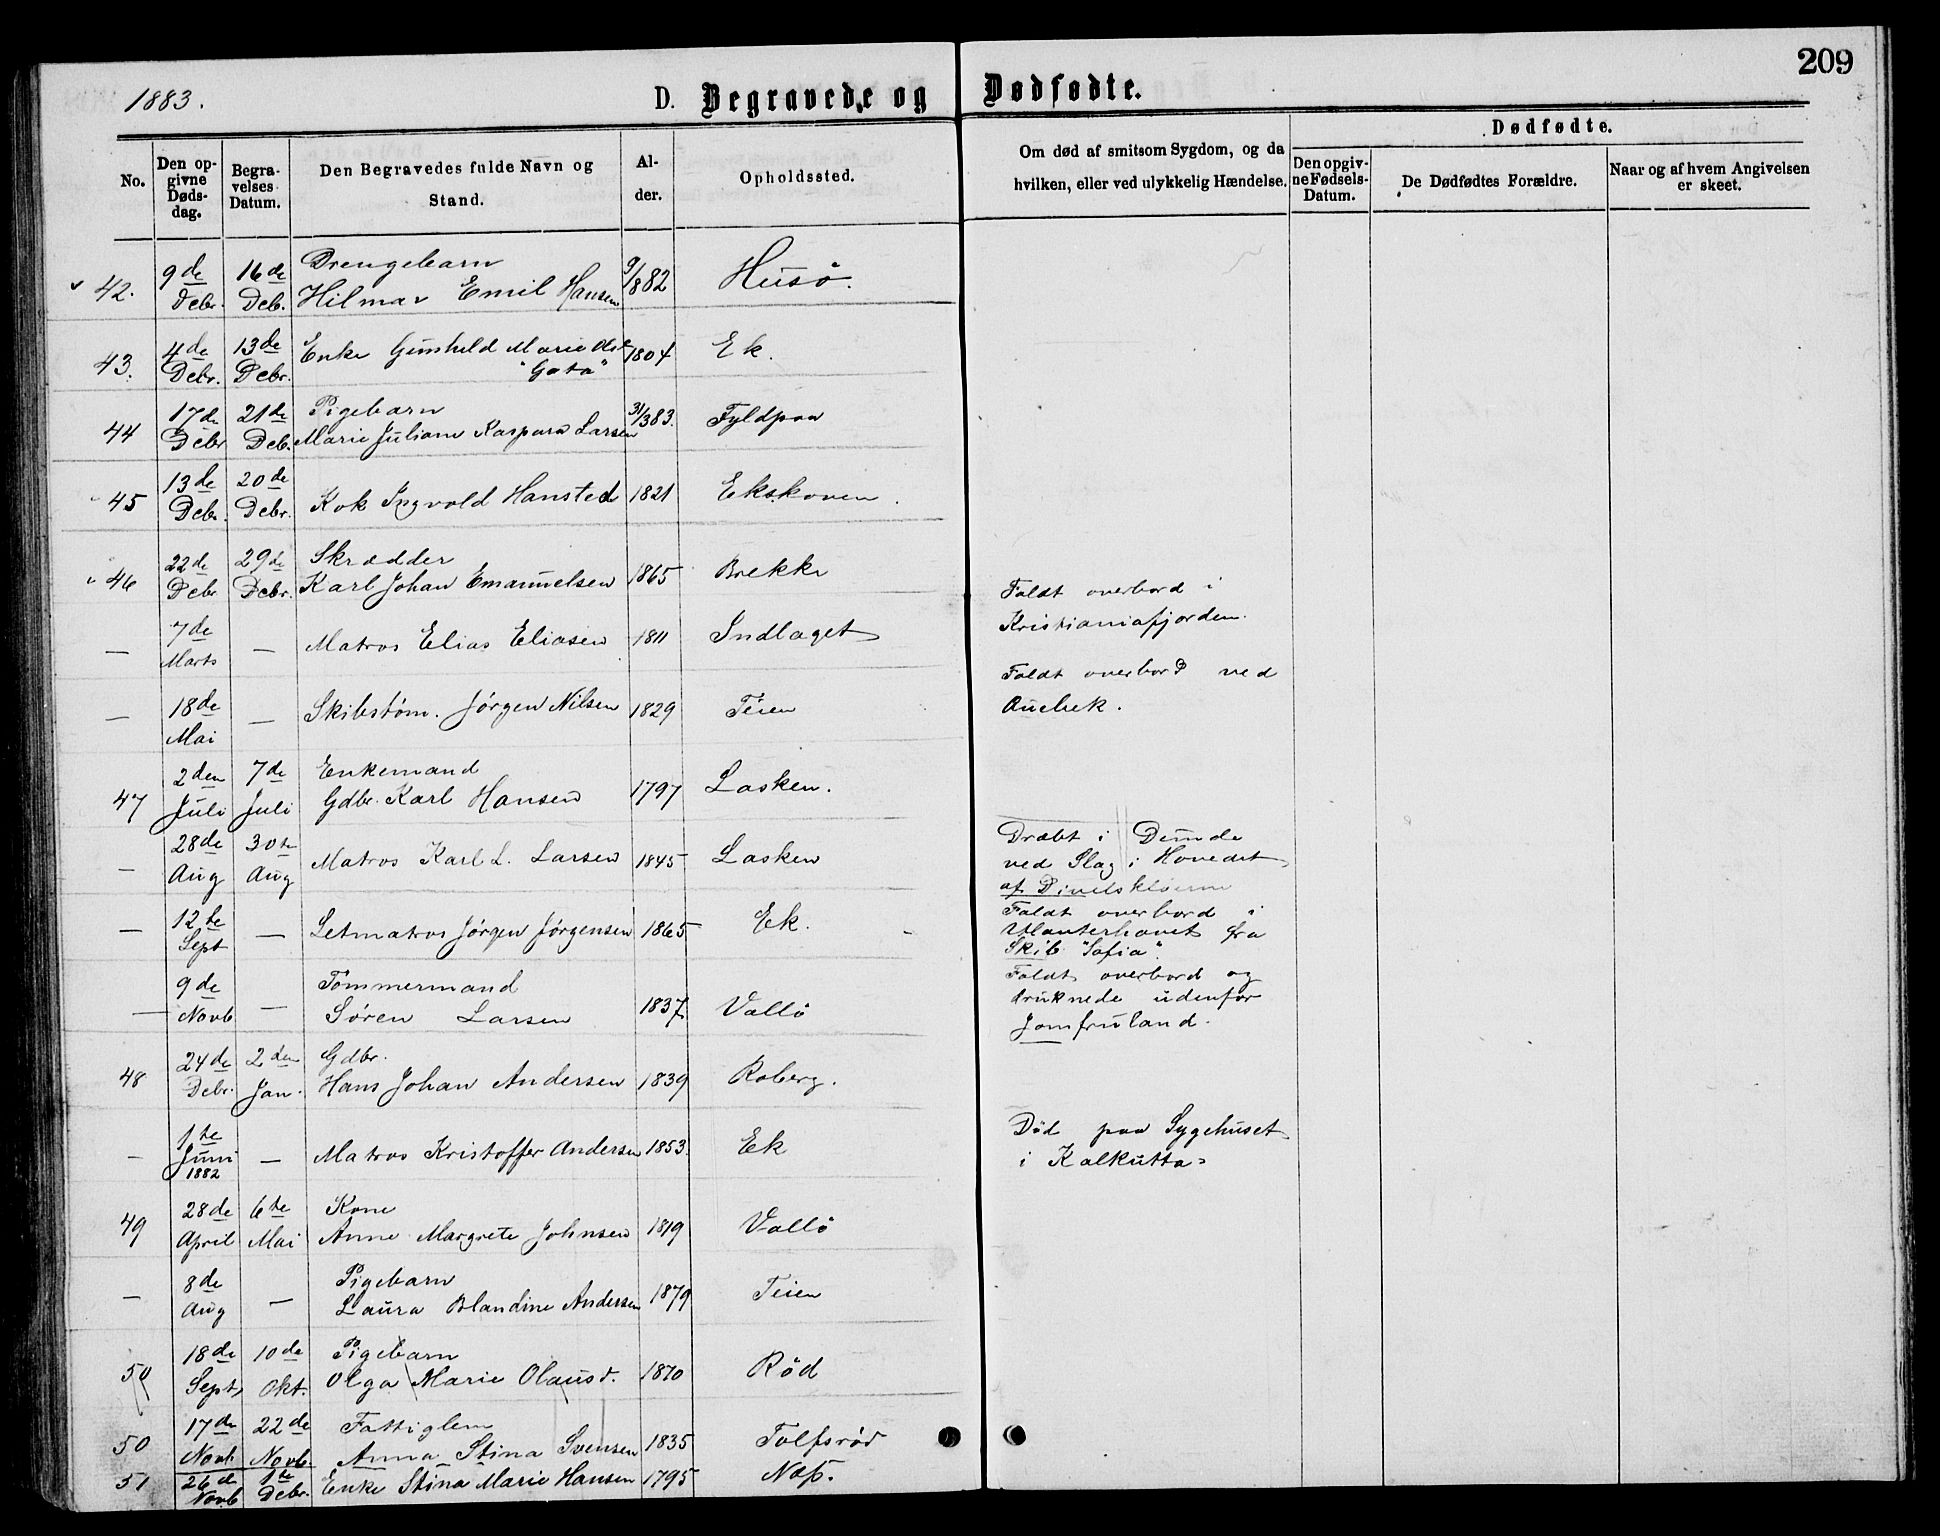 209
1883.
D. Begravede og Dødfødte.
No.
Den opgivne Dødsdag.
Begravelses Datum.
Den Begravedes fulde Navn og Stand.
Alder.
Opholdssted.
Om død af smitsom Sygdom, og da hvilken, eller ved ulykkelig Hændelse.
Dødfødte.
Den opgivne Fødsels-Datum.
De Dødfødtes Forældre.
Naar og af hvem Angivelsen er skeet.
42. 9de Debr. 16de Deb. Drengebarn
Hilmar Emil Hansen 9/882 Husö.
43. 4de Debr. 13de Debr. Enke Gunhild Marie Olsd
"Gata" 1804 Ek.
44 17de Debr 21de Deb. Pigebarn
Marie Juliane Kaspara Larsen 31/383. Fyldpaa
45 13de Debr. 20de Debr. Kok Ingvold Hansted 1821 Ekskoven.
46 22de Debr 29de Debr. Skrædder
Karl Johan Emanuelsen 1865 Brekke
— 7de Marts — Matros Elias Eliasen 1811 Indlaget
Faldt overbord i
Kristianiafjorden.
— 18de Mai — Skibstøm. Jörgen Nilsen 1829 Teien
Faldt overbord ved
Auebek.
47 2den Juli 7de Juli Enkemand
Gdbr. Karl Hansen 1797 Lasken.
— 28de Aug 30te Aug Matros Karl L. Larsen 1845 Lasken
Dræbt i
ved Slag i Hovedet
af
— 12te Sept — Letmatros Jörgen Jörgensen 1865 Ek.
Faldt overbord i
Atlanterhavet fra
Skib "Sofia".
— 9de Novb — Tömmermand
Sören Larsen 1837 Vallö
Faldt overbord og
druknede udenfor
Jomfruland.
48 24de Debr. 2den Jan. Gdbr.
Hans Johan Andersen 1839 Roberg.
— 1te Juni 1882 — Matros Kristoffer Andersen 1853. Ek
Död paa Sygehuset
i Kalkutta
49 28de April 6te Mai Kone
Anne Margrete Johnsen 1819 Vallö
— 8de Aug — Pigebarn
Laura Blandine Andersen 1879 Teien
50 18de Sept 10de Okt. Pigebarn
Olga Marie Olausd. 1870 Röd
50 17de Novb. 22de Novb. Fattiglem
Anna Stina Svensen 1835 Tolfsröd
51 26de Novb 1te Debr. Enke Stina Marie Hansen 1795 Næs.